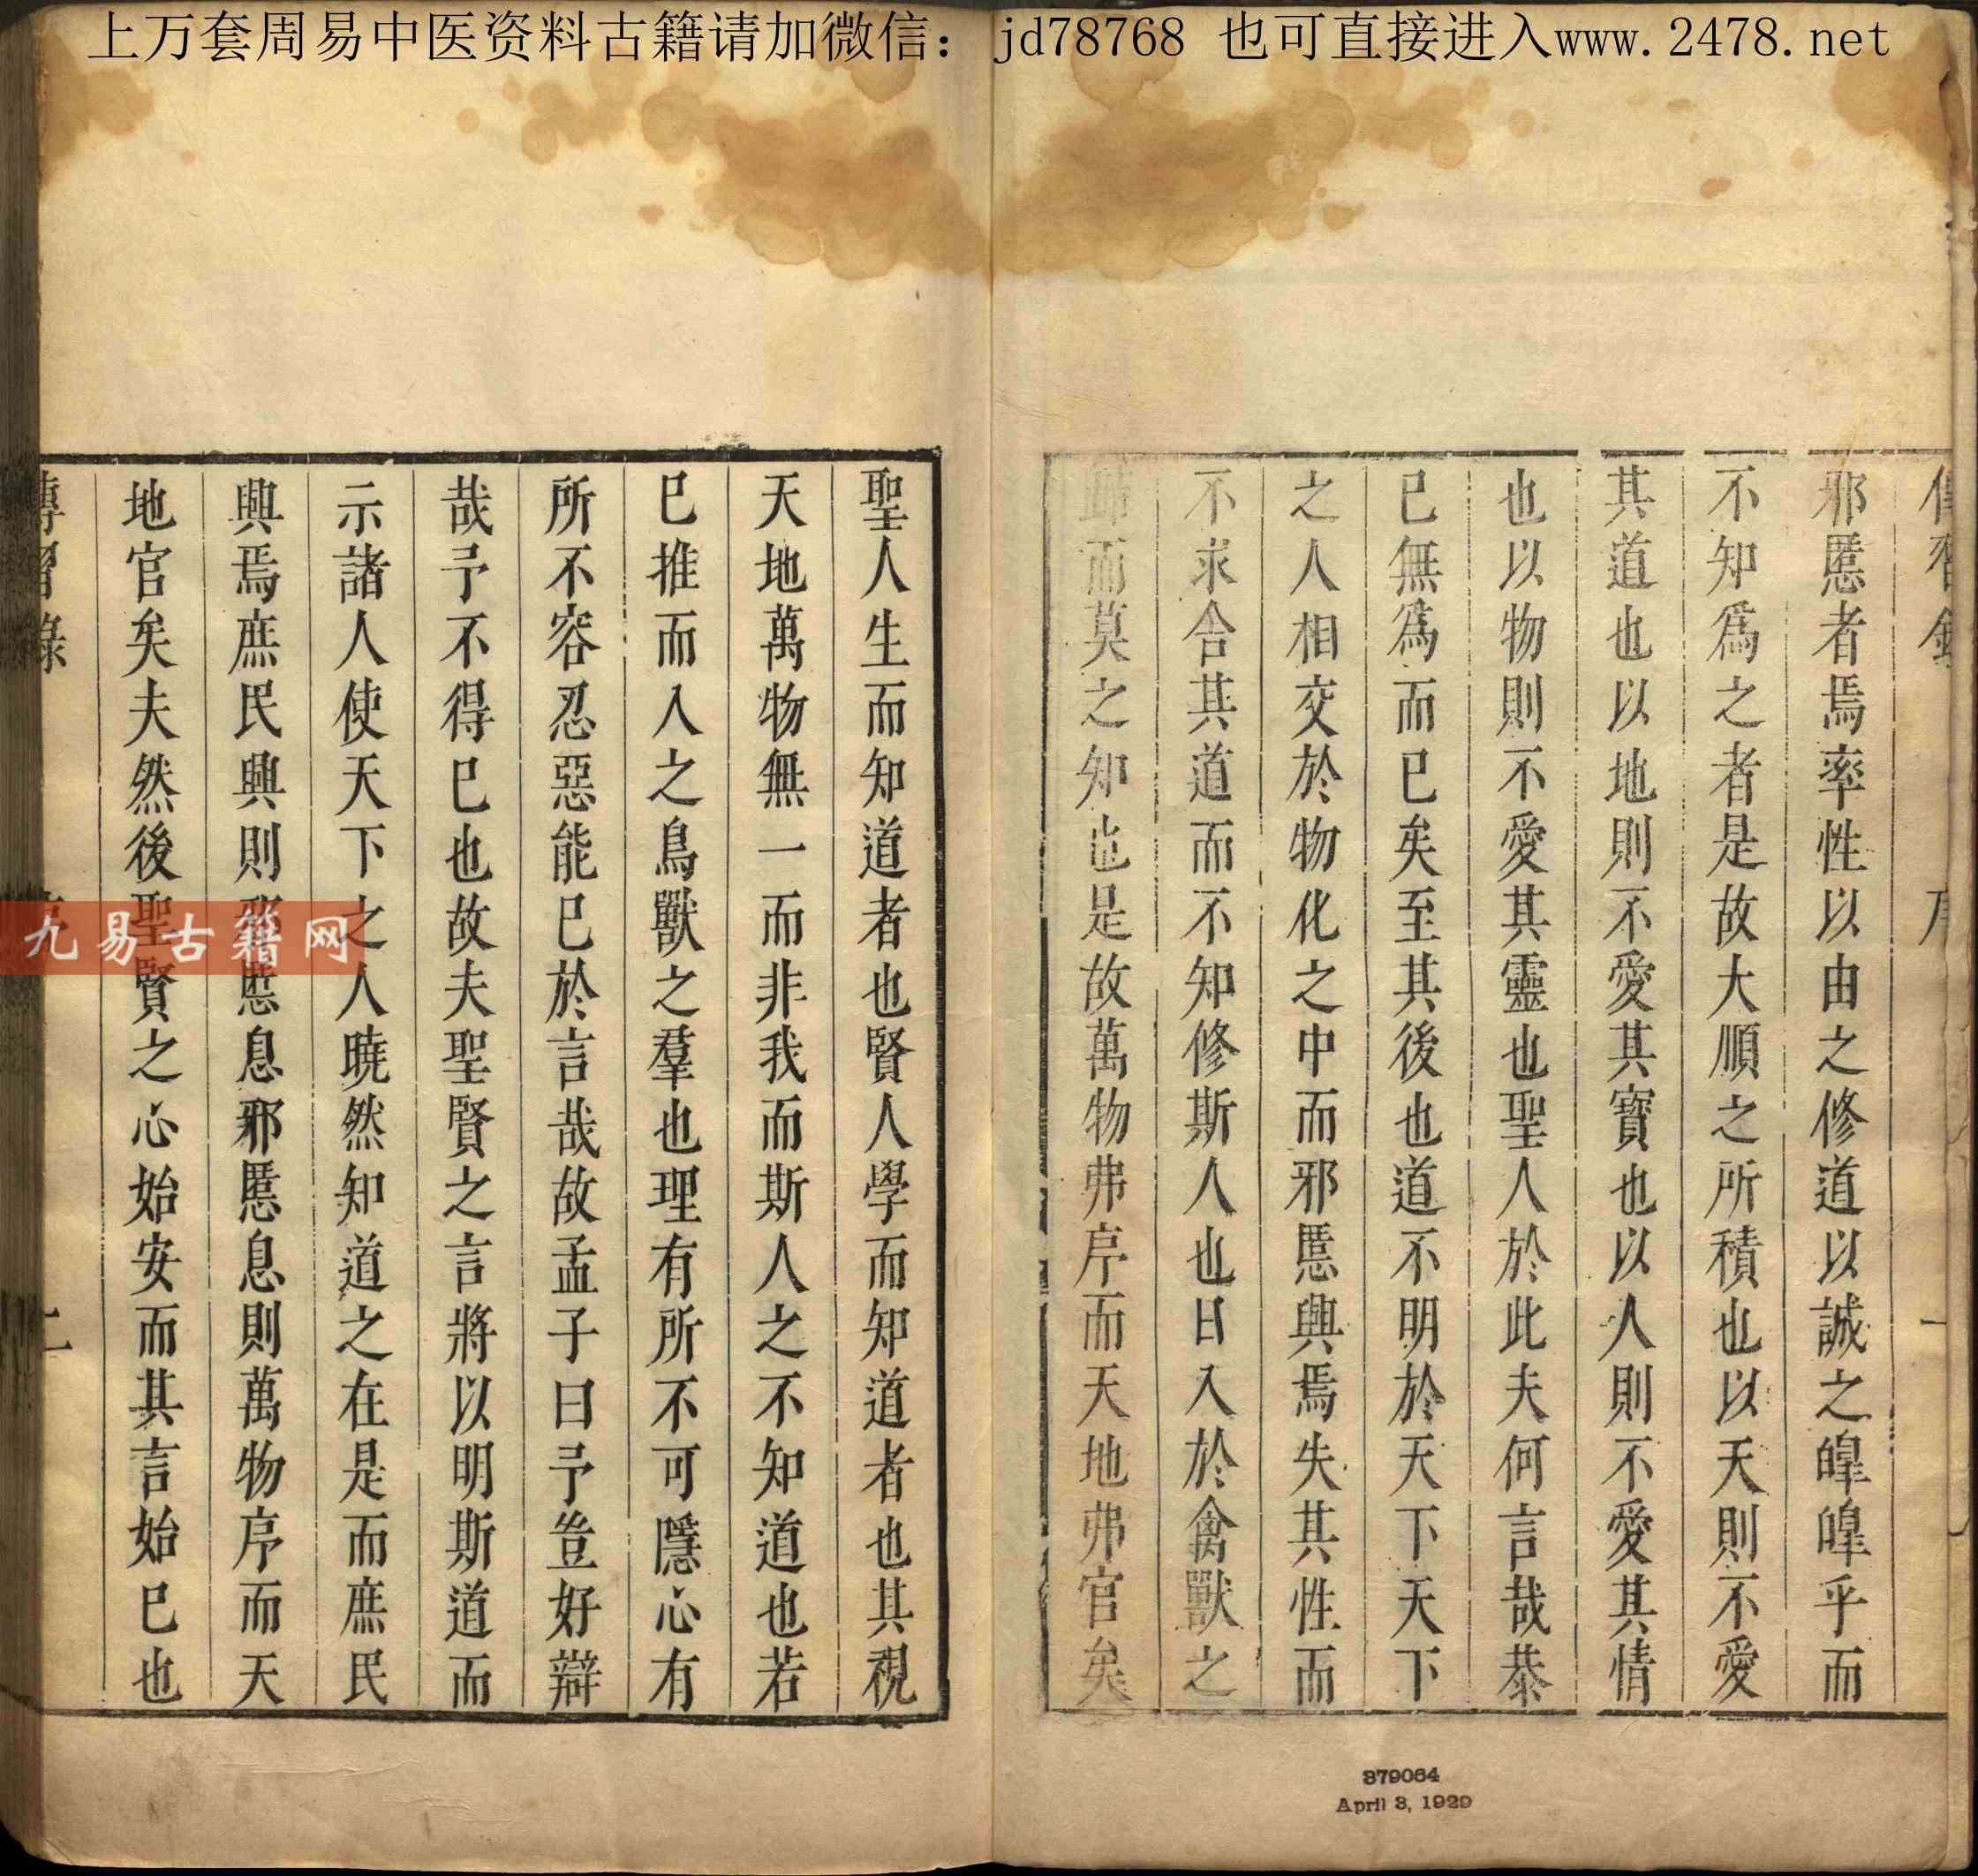 上万套周易中医资料古籍请加微信：jd78768 也可直接进入www.2478.net
邪慝者焉率性以由之修道以誠之皥皥乎而
不知爲之者是故大順之所積也以天則不愛
其道也以地則不愛其寶也以人則不愛其情
也以物則不愛其靈也聖人於此夫何言哉恭
已無爲而已矣至其後也道不明於天下天下
之人相交於物化之中而邪慝興焉失其性而
不求舎其道而不知修斯人也日入於禽獸之
歸而莫之知也是故萬物弗序而天地弗官矣
聖人生而知道者也賢人學而知道者也其視
天地萬物無一而非我而斯人之不知道也若
已推而入之鳥獸之羣也理有所不可隱心有
所不容忍惡能已於言哉故孟子曰予豈好辯
哉予不得已也故夫聖賢之言將以明斯道而
示諸人使天下之人曉然知道之在是而庶民
興焉庶民興則邪慝息邪慝息則萬物序而天
地官矣夫然後聖賢之心始安而其言始已也
傳習錄
二
九易古籍网
379064
April 3, 1929